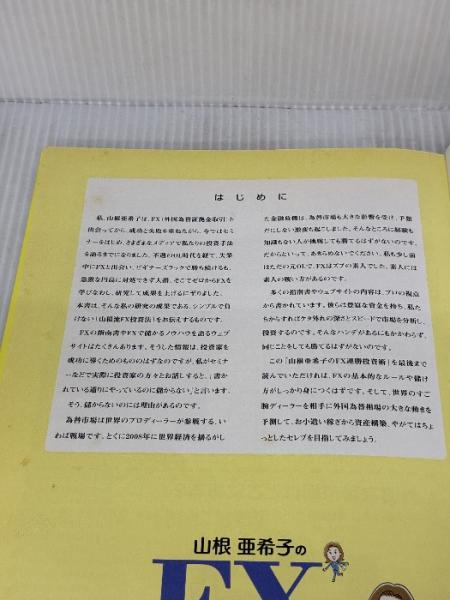 はじめに
私、山根亜希子は、FX（外国為替証拠金取引）と
出会ってから、成功と失敗を重ねながら、今ではセミ
ナーをはじめ、さまざまなメディアで私なりの投資手法
を語るまでになりました。不遇のOL時代を経て、失業
中にFXと出会い、ビギナーズラックで勝ち続けるも、
急激な円高に対処できず大損。そこでゼロからFXを
学びなおし、研究して成果を上げるにいたりました。
本書は、そんな私の研究の成果である、シンプルで負
けない「山根流FX投資法」をお伝えするものです。
FXの指南書やFXで儲かるノウハウを語るウェブ
サイトはたくさんあります。そうした情報は、投資家を
成功に導くためのもののはずなのですが、私がセミナ
ーなどで実際に投資家の方々とお話しすると、「書か
れている通りにやっているのに儲からない」と言います。
そう、儲からないのには理由があるのです。
為替市場は世界のプロディーラーが参戦する、い
わば戦場です。とくに2008年に世界経済を揺るがし
た金融危機は、為替市場も大きな影響を受け、予想
だにしない激変も起こしました。そんなところに経験も
知識もない人が挑戦しても勝てるはずがないのです。
だからといって、あきらめないでください。私も少し前
はただの元OLで、FXはズブの素人でした。素人には
素人の戦い方があるのです。
多くの指南書やウェブサイトの内容は、プロの視点
から書かれています。彼らは豊富な資金を持ち、私た
ちからすればケタ外れの深さとスピードで市場を分析し、
投資するのです。そんなハンデがあるにもかかわらず、
同じことをしても勝てるはずがないのです。
この「山根亜希子のFX連勝投資術」を最後まで
読んでいただければ、FXの基本的なルールや儲け
方がしっかり身につくはずです。そして、世界のすご
腕ディーラーを相手に外国為替相場の大きな動きを
予測して、お小遣い稼ぎから資産構築、やがてはちょ
っとしたセレブを目指してみましょう。
山根 亜希子の
FX